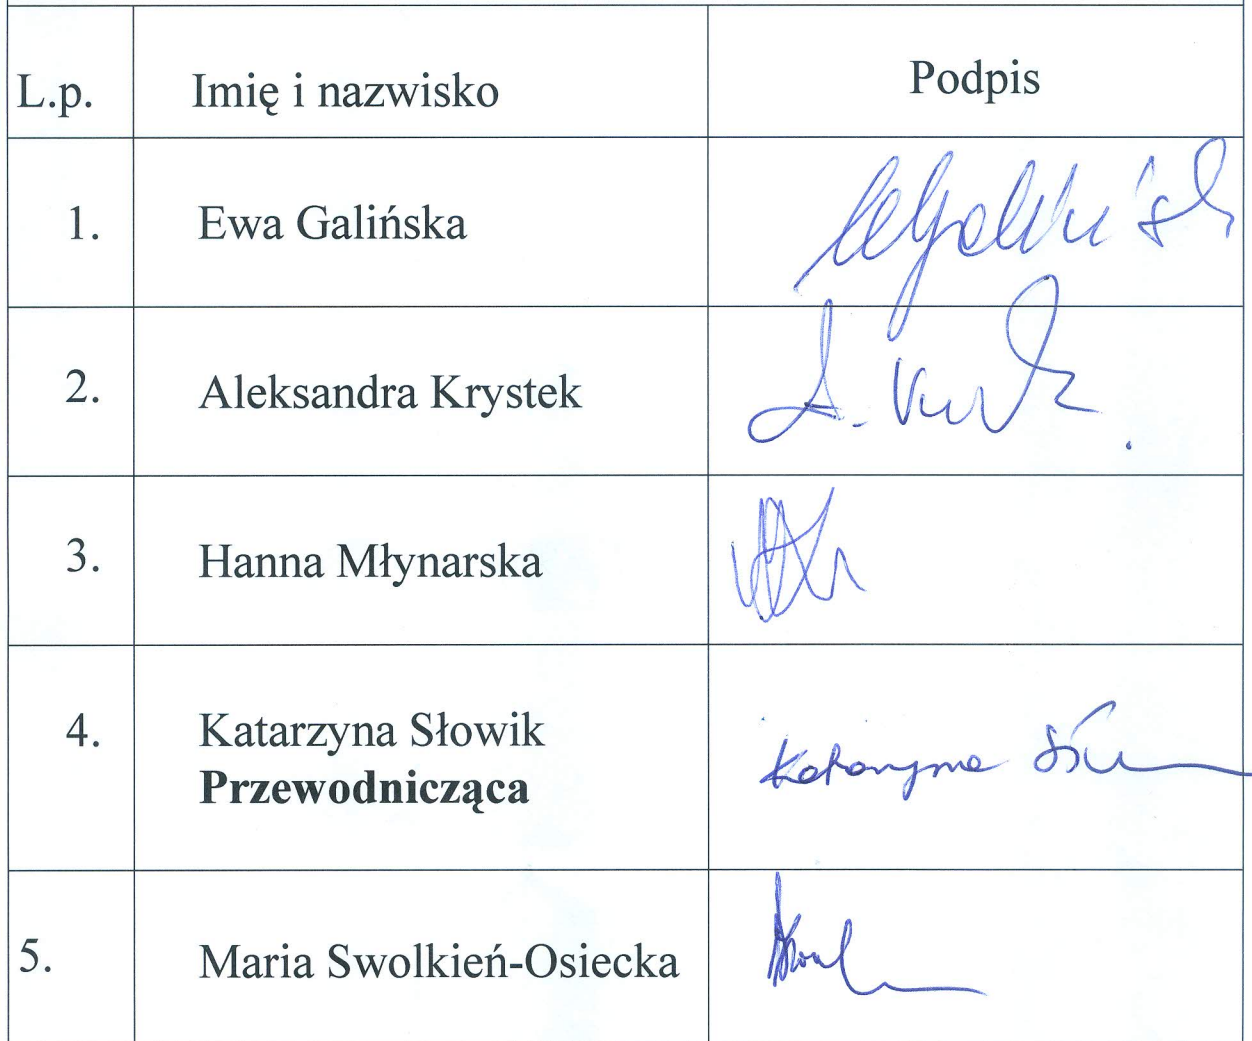 L.p.
Imię i nazwisko
Podpis
1.
Ewa Galińska
2.
Aleksandra Krystek
3.
Hanna Młynarska
4.
Katarzyna Słowik
Przewodnicząca
Katarzyna
5.
Maria Swolkień-Osiecka